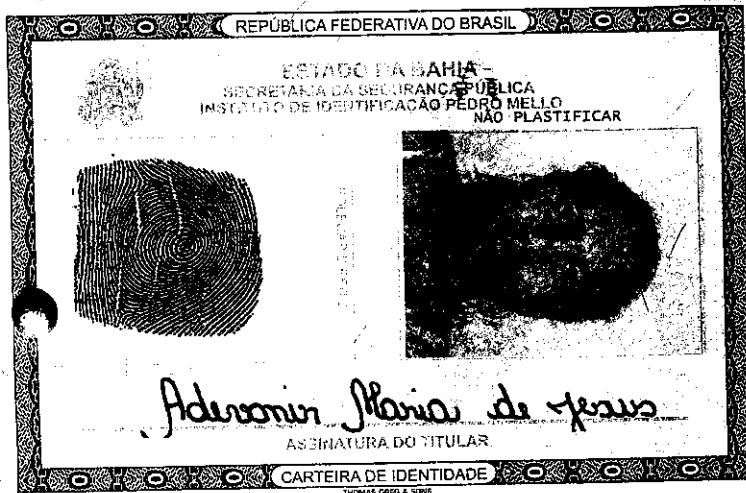 REPÚBLICA FEDERATIVA DO BRASIL
ESTADO DA BAHIA
SECRETARIA DA SEGURANÇA PÚBLICA
INSTITUTO DE IDENTIFICAÇÃO PEDRO MELLO
NÃO PLASTIFICAR
Maria de Jesus
ASSINATURA DO TITULAR
CARTEIRA DE IDENTIDADE
THOMAS GREG & SONS